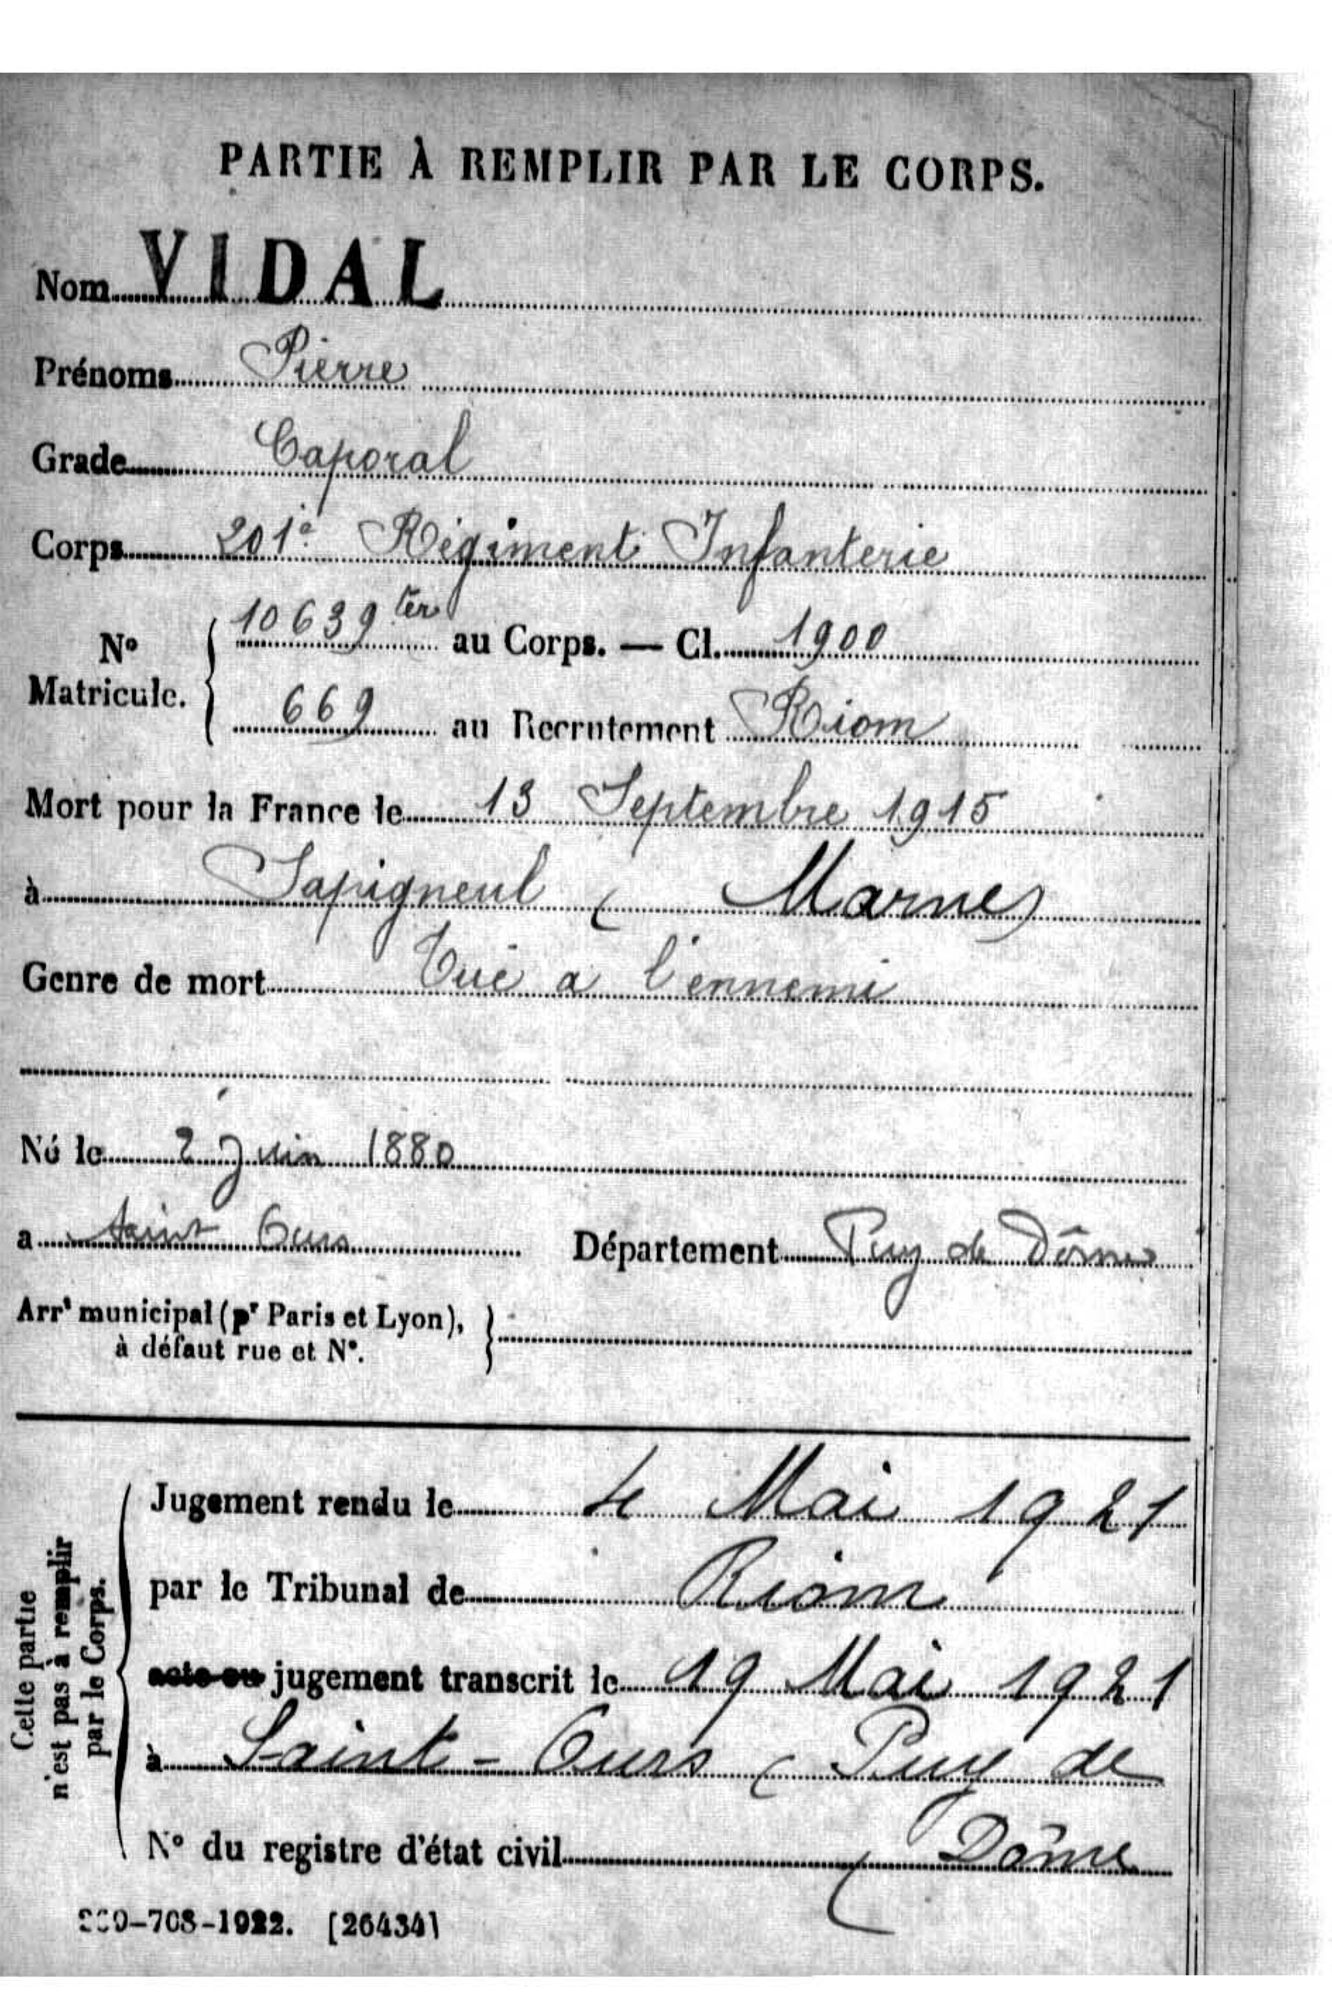 PARTIE À REMPLIR PAR LE CORPS.
Nom VIDAL
Prénoms Pierre
Grade Caporal
Corps 201e Régiment Infanterie
N° Matricule.
10639 ter au Corps. — Cl. 1900
669 au Recrutement Riom
Mort pour la France le 13 Septembre 1915
à Sapigneul ( Marne)
Genre de mort Tué a l'ennemi
Né le 2 Juin 1880
a Saint Ours Département Puy de Dôme
Arrt municipal (pr Paris et Lyon),
à défaut rue et N°.
Cette partie
n'est pas à remplir
par le Corps.
Jugement rendu le 4 Mai 1921
par le Tribunal de Riom
acte ou jugement transcrit le 19 Mai 1921
à Saint-Ours ( Puy de
N° du registre d'état civil Dôme
708-1922. [26434]